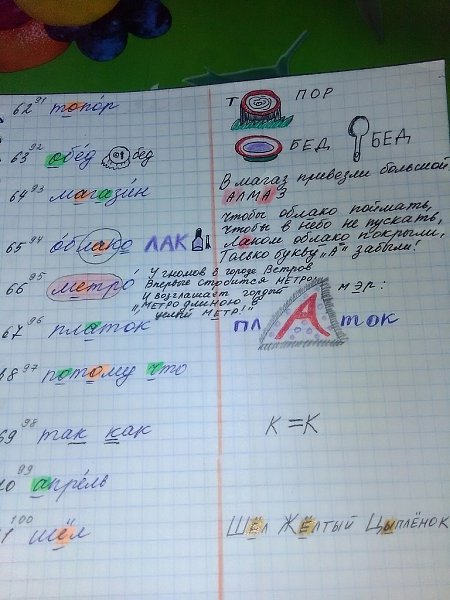 62 91 топо́р
Т ПОР
63 92 обе́д бед
БЕД БЕД
64 93 магази́н
В магаз привезли большой
АЛМАЗ
65 94 о́блако ЛАК
Чтобы облако поймать,
Чтобы в небо не пускать,
Лаком облако покрыли,
Только букву „А" забыли!
66 95 метро́
У гномов в городе Ветров
Впервые строится МЕТРО.
И возглашает гордо мэр:
„МЕТРО длиною в
целый МЕТР!"
67 96 платок
пл А ток
68 97 потому что
69 98 так как
К = К
70 99 апре́ль
71 100 шёл
Шёл Жёлтый Цыплёнок